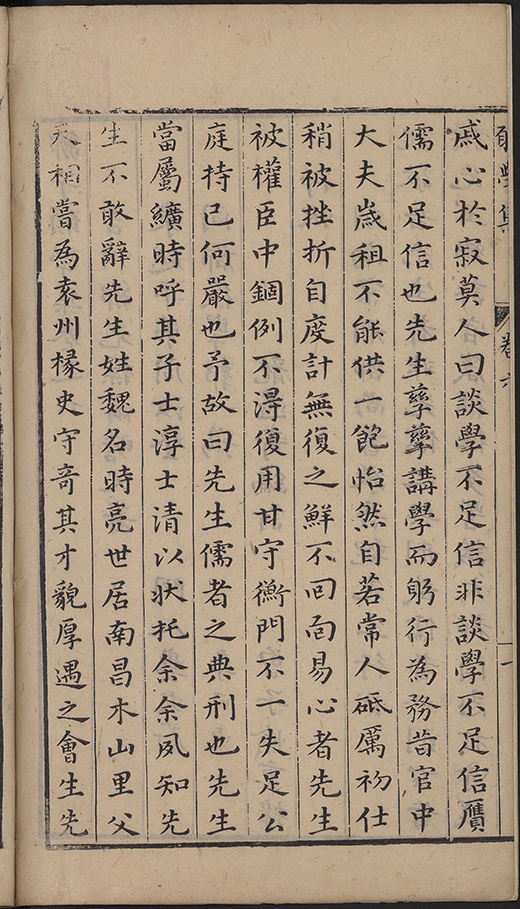 願學集 卷六 一
戚心於寂莫人曰談學不足信非談學不足信贗
儒不足信也先生孳孳講學而躬行為務昔官中
大夫歲租不能供一飽怡然自若常人砥厲初仕
稍被挫折自度計無復之鮮不回面易心者先生
被權臣中錮例不得復用甘守衡門不一失足公
庭持己何嚴也予故曰先生儒者之典刑也先生
當屬纊時呼其子士淳士清以狀托余余夙知先
生不敢辭先生姓魏名時亮世居南昌木山里父
天相嘗為袁州椽史守奇其才貌厚遇之會生先